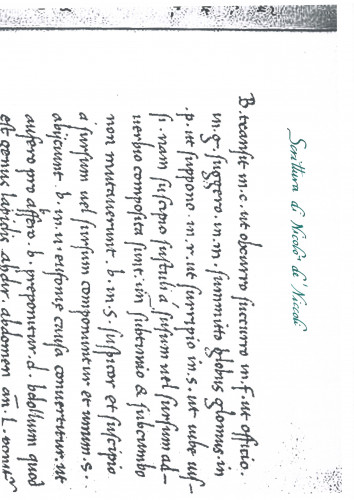 Scrittura di Nicolò de' Niccoli
B. transit in. c. ut obcurro succurro in. f. ut officio.
in. g. suggero. in. m. summitto globus glomus. in
.p. ut suppono. in. r. ut surripio in. s. ut iube ius-
si. nam suscipio sustuli a susum uel sursum ad-
uerbio composita sunt. subtinnio & subcumbo
non mutauerunt. b. in. s. suspicor et suscipio
a sursum uel sursum componuntur et unum. s.
abijciunt. b. in. u. eufoniae causa conuertitur. ut
aufero pro abfero. b. preponitur. d. bdellium quod
est genus lapidis abdir. abdomen an. l.